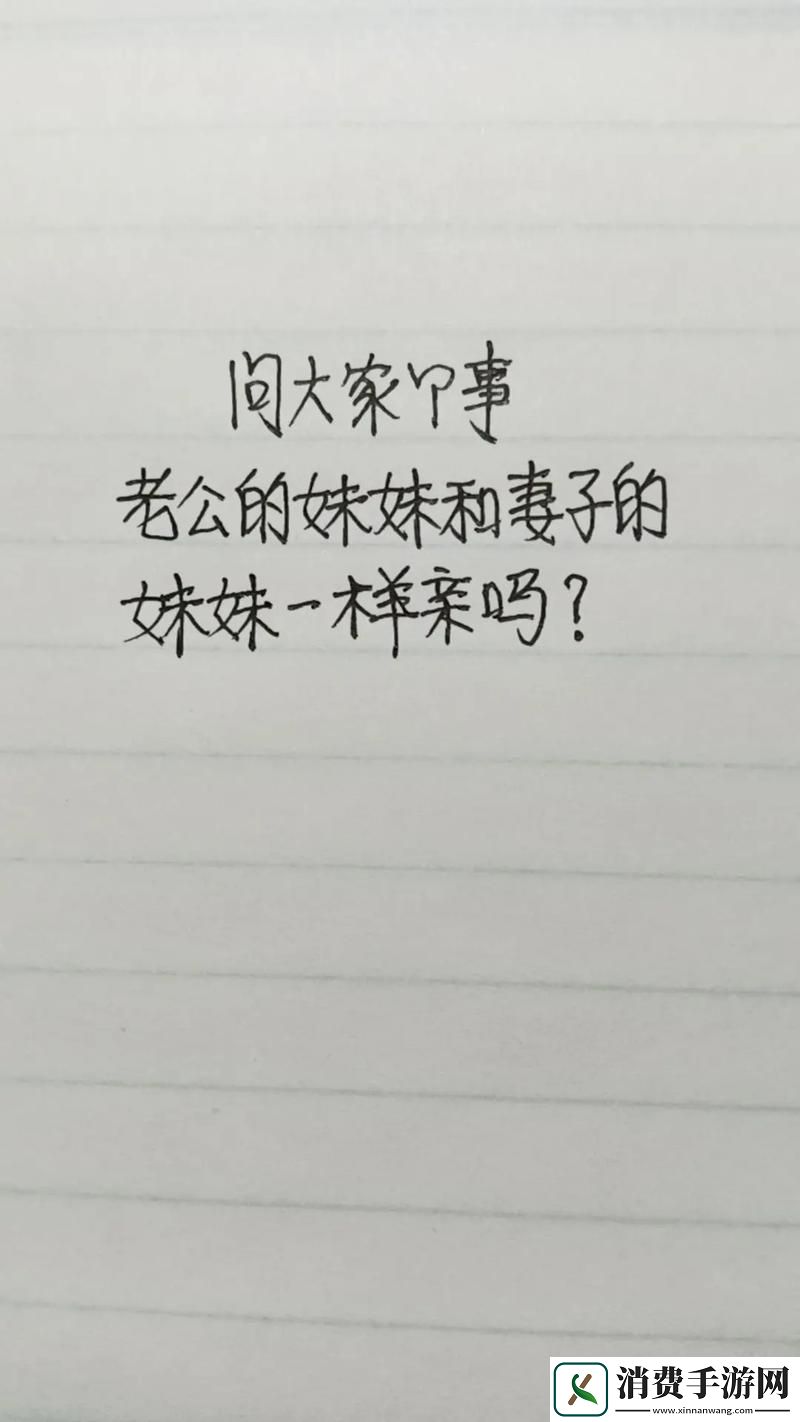 问大家个事
老公的妹妹和妻子的
妹妹一样亲吗？
消费手游网
www.xinnanwang.com